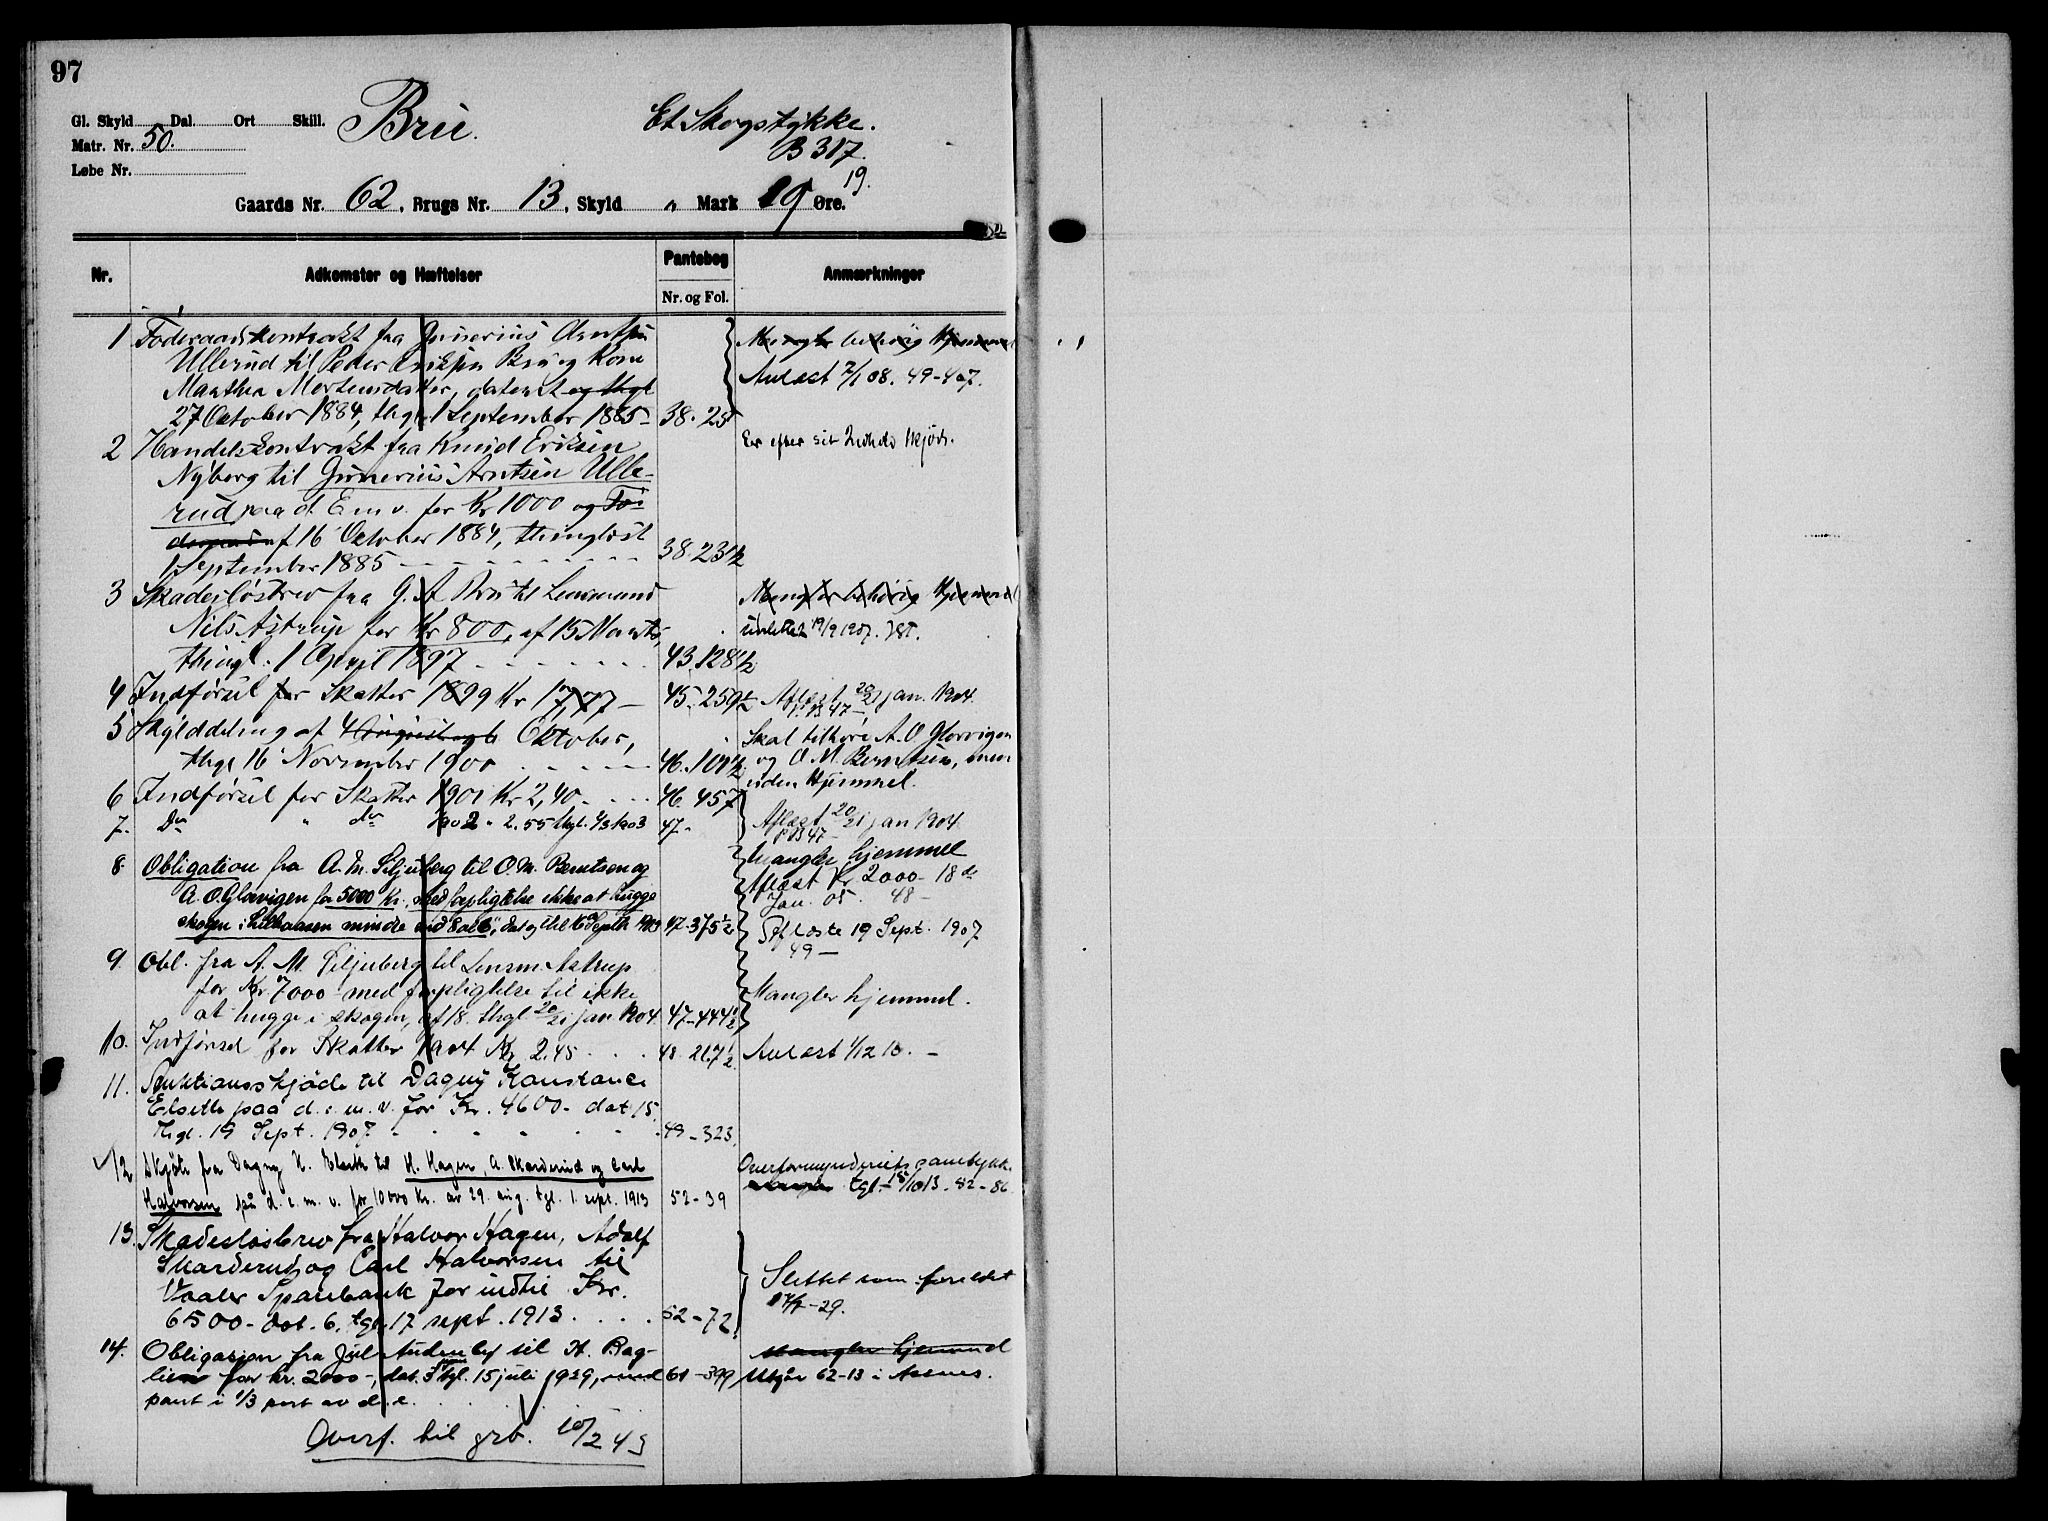 97
Gl. Skyld Dal. Ort Skill. Bru. Et Skogstykke.
Matr. Nr. 50. B 317.
Løbe Nr.
19.
Gaards Nr. 62, Brugs Nr. 13, Skyld " Mark 19 Øre.
Nr. Adkomster og Hæftelser Pantebog Anmærkninger
Nr. og Fol.
1 Føderaadskontrakt fra Gunerius Arntsen Mangler behørig Hjemmel
Ullerud til Peder Eriksen Bru og Kone
Marthea Mortensdatter, dateret og thgl Avlæst 2/1 08. 49-407.
27 October 1884, thgl. 1 September 1885 38.25
2 Handelskontrakt fra Knud Eriksen Er efter sit Indhold skjøde.
Nyberg til Gunerius Arntsen Ulle-
rud paa d. E m v. for Kr 1000 og Fø-
deraad af 16 October 1884, thinglæst
1 September 1885 38.23½
3 Skadesløsbrev fra G. A. Bru til Lensmand Mangler behørig Hjemmel
Nils Astrup for Kr 800, af 15 Marts, slettet 19/9 1907.
thingl. 1 April 1897 43.128½
4 Indførsel for Skatter 1899 Kr 17,77 45.259½ Aflæst 20/21 jan. 1904.
PB 47
5 Skylddeling af 4 August og 6 Oktober, Skal tilhøre A. O Glorvigen
thgl 16 November 1900 46.101½ og O. M. Berntsen, men
uden Hjemmel.
6 Indførsel for Skatter 1901 Kr 2,40 46.457
7. Do " do 1902 " 2.55 thgl. 4/3 1903 47- Aflæst 20/21 jan 1904
PB 47
8. Obligation fra A. M. Siljuberg til O. M. Berntsen og Mangler hjemmel
A. O. Glorvigen for 5000 Kr. med forpligtelse ikke at hugge Aflæst Kr. 2000- 18de
Jan. 05. 48-
skogen i Lilleaasen mindre end 8 al. 6", dat og thl 16 Septbr 1903 47.375½ Aflæste 19 Sept. 1907
49-
9. Obl. fra A. M. Siljuberg til Lensm. Astrup
for Kr. 7000 med forpligtelse til ikke Mangler hjemmel.
at hugge i skogen, af 18. thgl 20/21 jan 1904. 47-444½
10. Indførsel for Skatter 1904 Kr. 2.45 48.217½ Avlæst 1/12 10.
11. Auktionsskjøde til Dagny Konstance
Elseth paa d. e. m. v. for Kr. 4600- dat 15.
thgl. 19 Sept. 1907 49-323.
12 Skjøte fra Dagny K. Elseth til H. Hagen, A. Skarderud og Carl Overformynderiets samtykke
Halvorsen på d. e. m. v. for 10000 Kr. av 29. aug. tgl. 1. sept. 1913 52-39 tgl. 15/10 13-52-86.
13. Skadesløsbrev fra Halvor Hagen, Adolf
Skarderud og Carl Halvorsen til Slettet som foreldet
Vaaler Sparebank for indtil Kr. 17/7-29.
6500- dat. 6. tgl. 17 sept. 1913 52-72
14. Obligasjon fra Jul. Audenby til H. Bag- Mangler hjemmel
lien for kr. 2000-, dat. 3 tgl. 15 juli 1929, med 61-399 Utgår 62-13 i Aasnes.
pant i 1/3 part av d. e.
Overf. til grb. 10/2 45